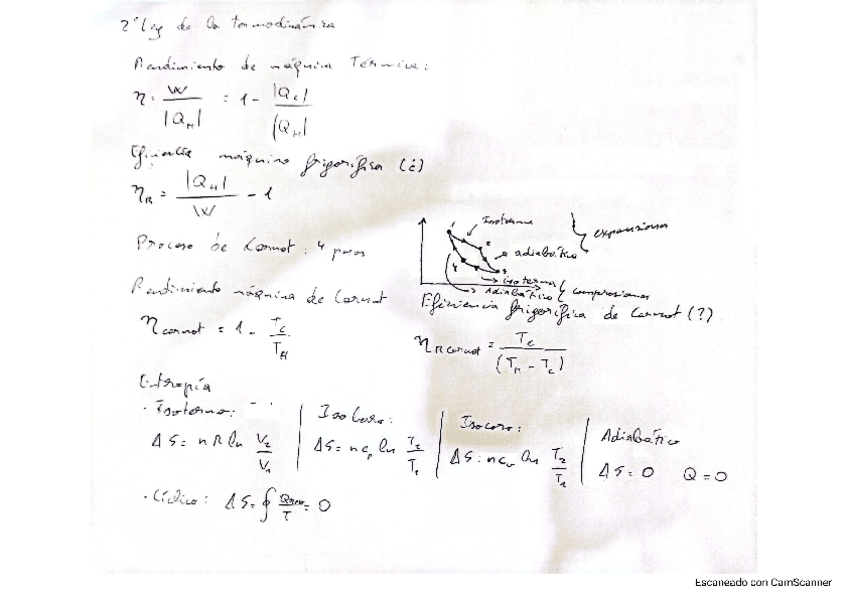 2ª Ley de la termodinámica
Rendimiento de máquina Térmica:
η = W / |Q_H| = 1 - |Q_C| / |Q_H|
Eficiencia máquina frigorífica (é)
η_R = |Q_H| / W - 1
Proceso de Carnot: 4 pasos
Isoterma
adiabática
} expansiones
isoterma
Adiabática
} compresiones
Rendimiento máquina de Carnot
η carnot = 1 - T_C / T_H
Eficiencia frigorífica de Carnot (?)
η_R carnot = T_C / (T_H - T_C)
Entropía
· Isotermo:
ΔS = nR ln V_2 / V_1
Isobaro:
ΔS = nc_p ln T_2 / T_1
Isocoro:
ΔS = nc_v ln T_2 / T_1
Adiabático
ΔS = 0 Q = 0
· Cíclico: ΔS = ∮ Q_rev / T = 0
Escaneado con CamScanner